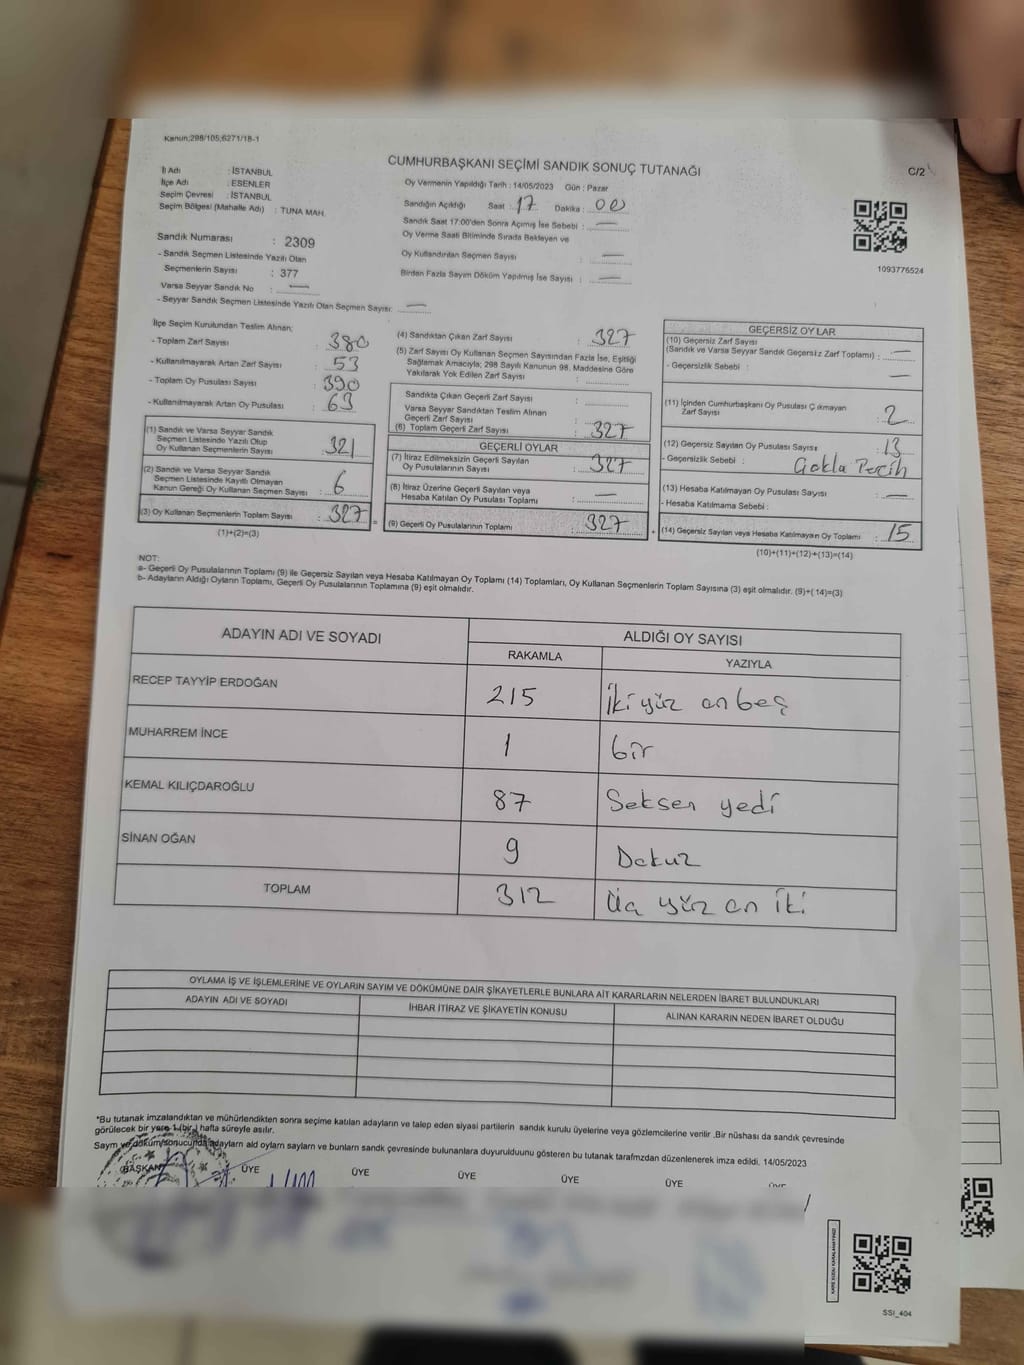 Kanun;298/105;6271/18-1
CUMHURBAŞKANI SEÇİMİ SANDIK SONUÇ TUTANAĞI
C/2
İl Adı : İSTANBUL
İlçe Adı : ESENLER
Seçim Çevresi : İSTANBUL
Seçim Bölgesi (Mahalle Adı) : TUNA MAH.
Oy Vermenin Yapıldığı Tarih : 14/05/2023 Gün : Pazar
Sandığın Açıldığı Saat : 17 Dakika : 00
Sandık Saat 17:00'den Sonra Açımış İse Sebebi : —
Oy Verme Saati Bitiminde Sırada Bekleyen ve
Oy Kullandırılan Seçmen Sayısı : —
Birden Fazla Sayım Döküm Yapılmış İse Sayısı : —
1093776524
Sandık Numarası : 2309
- Sandık Seçmen Listesinde Yazılı Olan
Seçmenlerin Sayısı : 377
Varsa Seyyar Sandık No : —
- Seyyar Sandık Seçmen Listesinde Yazılı Olan Seçmen Sayısı: —
İlçe Seçim Kurulundan Teslim Alınan;
- Toplam Zarf Sayısı : 380
- Kullanılmayarak Artan Zarf Sayısı : 53
- Toplam Oy Pusulası Sayısı : 390
- Kullanılmayarak Artan Oy Pusulası : 63
(1) Sandık ve Varsa Seyyar Sandık
Seçmen Listesinde Yazılı Olup
Oy Kullanan Seçmen Sayısı : 321
(2) Sandık ve Varsa Seyyar Sandık
Seçmen Listesinde Kayıtlı Olmayan
Kanun Gereği Oy Kullanan Seçmen Sayısı : 6
(3) Oy Kullanan Seçmenlerin Toplam Sayısı : 327
(1)+(2)=(3)
(4) Sandıktan Çıkan Zarf Sayısı : 327
(5) Zarf Sayısı Oy Kullanan Seçmen Sayısından Fazla İse, Eşitliği
Sağlamak Amacıyla; 298 Sayılı Kanunun 98. Maddesine Göre
Yakılarak Yok Edilen Zarf Sayısı :
Sandıkta Çıkan Geçerli Zarf Sayısı :
Varsa Seyyar Sandıktan Teslim Alınan
Geçerli Zarf Sayısı :
(6) Toplam Geçerli Zarf Sayısı : 327
GEÇERLİ OYLAR
(7) İtiraz Edilmeksizin Geçerli Sayılan
Oy Pusulalarının Sayısı : 327
(8) İtiraz Üzerine Geçerli Sayılan veya
Hesaba Katılan Oy Pusulası Toplamı : —
(9) Geçerli Oy Pusulalarının Toplamı : 327
GEÇERSİZ OYLAR
(10) Geçersiz Zarf Sayısı
(Sandık ve Varsa Seyyar Sandık Geçersiz Zarf Toplamı) : —
- Geçersizlik Sebebi : —
(11) İçinden Cumhurbaşkanı Oy Pusulası Çıkmayan
Zarf Sayısı : 2
(12) Geçersiz Sayılan Oy Pusulası Sayısı : 13
- Geçersizlik Sebebi :
(13) Hesaba Katılmayan Oy Pusulası Sayısı : —
- Hesaba Katılmama Sebebi :
(14) Geçersiz Sayılan veya Hesaba Katılmayan Oy Toplamı : 15
(10)+(11)+(12)+(13)=(14)
NOT:
a- Geçerli Oy Pusulalarının Toplamı (9) ile Geçersiz Sayılan veya Hesaba Katılmayan Oy Toplamı (14) Toplamları, Oy Kullanan Seçmenlerin Toplam Sayısına (3) eşit olmalıdır. (9)+(14)=(3)
b- Adayların Aldığı Oyların Toplamı, Geçerli Oy Pusulalarının Toplamına (9) eşit olmalıdır.
ADAYIN ADI VE SOYADI ALDIĞI OY SAYISI
RAKAMLA YAZIYLA
RECEP TAYYİP ERDOĞAN 215 İki yüz on beş
MUHARREM İNCE 1 bir
KEMAL KILIÇDAROĞLU 87 Seksen yedi
SİNAN OĞAN 9 Dokuz
TOPLAM 312 Üç yüz on iki
OYLAMA İŞ VE İŞLEMLERİNE VE OYLARIN SAYIM VE DÖKÜMÜNE DAİR ŞİKAYETLERLE BUNLARA AİT KARARLARIN NELERDEN İBARET BULUNDUKLARI
ADAYIN ADI VE SOYADI İHBAR İTİRAZ VE ŞİKAYETİN KONUSU ALINAN KARARIN NEDEN İBARET OLDUĞU
*Bu tutanak imzalandıktan ve mühürlendikten sonra seçime katılan adayların ve talep eden siyasi partilerin sandık kurulu üyelerine veya gözlemcilerine verilir .Bir nüshası da sandık çevresinde
görülecek bir yere 1 (bir) hafta süreyle asılır.
Sayım ve döküm sonucunda adayların ald oyların sayların ve bunların sandk çevresinde bulunanlara duyurulduunu gösteren bu tutanak tarafmzdan düzenlenerek imza edildi. 14/05/2023
BAŞKAN ÜYE ÜYE ÜYE ÜYE ÜYE ÜYE
SSİ_404